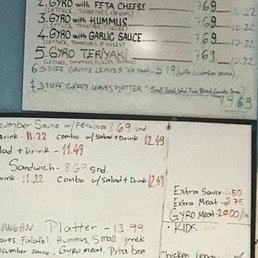 2. GYRO WITH FETA CHEESE 769 10.22
(LETTUCE, TOMATOES, ONION)
3. GYRO WITH HUMMUS 769 10.22
4. GYRO WITH GARLIC SAUCE 769 10.22
5. GYRO TERIYAKI 769 10.22
6. STUFF GRAPE LEAVES "No Meat" - 519 (with cucumber sauce)
7. STUFF GRAPE LEAVES PLATTER Small Greek Salad Pita Bread
9.69
cumber Sauce w/ 869 snd.
Drink 11.22 combo w/salad + Drink 12.49
lad + Drink - 11.49
Sandwich - 869 snd.
rink - 11.22 combo w/salad + Drink 12.49
Extra Sauce - .50
Extra Meat - 2.75
GYRO Meat - 20.00/lb
• KIDS
ANEAN Platter - 13.99
ves, Falafel, Hummus, Small greek
cumber sauce, Gyro meat, Pita bre
Chicken